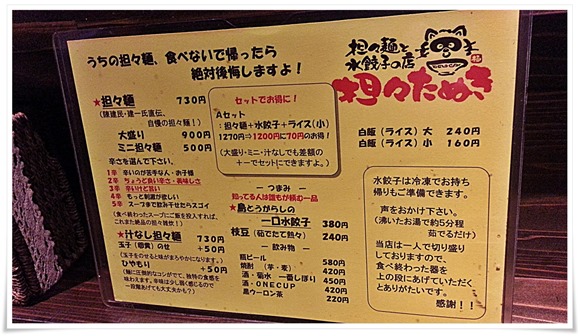 うちの担々麺、食べないで帰ったら
絶対後悔しますよ！
担々麺と
水餃子の店
担々たぬき
★担々麺 730円
(陳建民・建一氏直伝、
自慢の担々麺！)
大盛り 900円
ミニ担々麺 500円
辛さを選んで下さい。
1辛 辛いのが苦手な人・お子様
2辛 ちょうど良い辛さ・美味しさ
3辛 辛いけど旨い
4辛 もっと刺激が欲しい
5辛 スープまで飲み干せたらスゴイ
(食べ終わったスープにご飯を投入すれば、
これまた絶品の担々雑炊！)
★汁なし担々麺 730円
玉子（卵黄）のせ +50円
(玉子をのせると味がまろやかになります。)
ひやもり +50円
(麺に圧倒的なコシがでて、独特の食感を
味わえます。辛味は少し鋭く感じるので
一段階あげても大丈夫かも？)
セットでお得に！
Aセット
：担々麺＋水餃子＋ライス(小)
1270円⇒1200円に70円のお得！
(大盛り・ミニ・汁なしでも差額の
＋－でセットにできます。)
― つまみ ―
知ってる人は誰もが頼む一品
★島とうがらしの
一口水餃子 380円
枝豆（茹でたて熱々） 240円
― 飲み物 ―
瓶ビール 580円
焼酎（芋・麦） 420円
酒・菊水 一番しぼり 450円
酒・ONE CUP 420円
黒ウーロン茶 220円
白飯（ライス）大 240円
白飯（ライス）小 160円
水餃子は冷凍でお持ち
帰りもご準備できます。
声をおかけ下さい。
(沸いたお湯で約5分程
茹でるだけ)
当店は一人で切り盛り
しておりますので、
食べ終わった器を
上の段にあげていただく
とありがたいです。
感謝！！